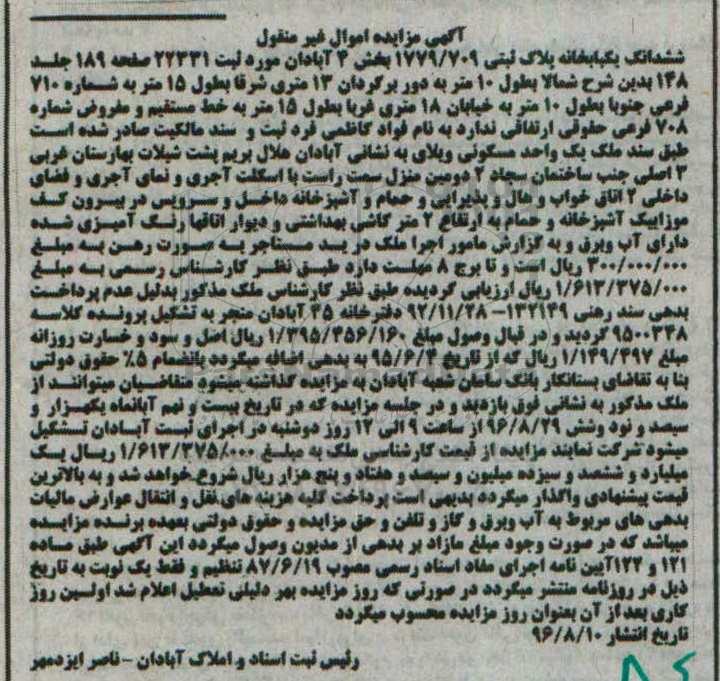 آگهی مزایده اموال غیر منقول
ششدانگ یکبابخانه پلاک ثبتی ۱۷۷۹/۷۰۹ بخش ۴ آبادان مورد ثبت ۲۲۳۳۱ صفحه ۱۸۹ جلد
۱۴۸ بدین شرح شمالا بطول ۱۰ متر به دور برگردان ۱۳ متری شرقا بطول ۱۵ متر به شماره ۷۱۰
فرعی جنوبا بطول ۱۰ متر به خیابان ۱۸ متری غربا بطول ۱۵ متر به خط مستقیم و مفروض شماره
۷۰۸ فرعی حقوقی ارتفاقی ندارد به نام فواد کاظمی فرد ثبت و سند مالکیت صادر شده است
طبق سند ملک یک واحد مسکونی ویلای به نشانی آبادان هلال بریم پشت شیلات بهارستان غربی
۳ اصلی جنب ساختمان سجاد ۲ دومین منزل سمت راست با اسکلت آجری و نمای آجری و فضای
داخلی ۲ اتاق خواب و هال و پذیرایی و حمام و آشپزخانه داخل و سرویس در بیرون کف
موزاییک آشپزخانه و حمام به ارتفاع ۲ متر کاشی بهداشتی و دیوار اتاقها رنگ آمیزی شده
دارای آب وبرق و به گزارش مامور اجرا ملک در ید مستاجر به صورت رهن به مبلغ
۳۰۰/۰۰۰/۰۰۰ ریال است و تا برج ۸ مهلت دارد طبق نظر کارشناس رسمی به مبلغ
۱/۶۱۳/۳۷۵/۰۰۰ ریال ارزیابی گردیده طبق نظر کارشناس ملک مذکور بدلیل عدم پرداخت
بدهی سند رهنی ۱۳۲۱۴۹- ۹۲/۱۱/۲۸ دفترخانه ۴۵ آبادان منجر به تشکیل پرونده کلاسه
۹۵۰۰۳۴۸ گردید و در قبال وصول مبلغ ۱/۳۹۵/۴۵۶/۱۶۰ ریال اصل و سود و خسارت روزانه
مبلغ ۱/۱۴۹/۴۹۷ ریال که از تاریخ ۹۵/۶/۴ به بدهی اضافه میگردد بانضمام ۵٪ حقوق دولتی
بنا به تقاضای بستانکار بانک سامان شعبه آبادان به مزایده گذاشته میشود متقاضیان میتوانند از
ملک مذکور به نشانی فوق بازدید و در جلسه مزایده که در تاریخ بیست و نهم آبانماه یکهزار و
سیصد و نود وشش ۹۶/۸/۲۹ از ساعت ۹ الی ۱۲ روز دوشنبه در اجرای ثبت آبادان تشکیل
میشود شرکت نمایند مزایده از قیمت کارشناسی ملک به مبلغ ۱/۶۱۳/۳۷۵/۰۰۰ ریال یک
میلیارد و ششصد و سیزده میلیون و سیصد و هفتاد و پنج هزار ریال شروع خواهد شد و به بالاترین
قیمت پیشنهادی واگذار میگردد بدیهی است پرداخت کلیه هزینه های نقل و انتقال عوارض مالیات
بدهی های مربوط به آب وبرق و گاز و تلفن و حق مزایده و حقوق دولتی بعهده برنده مزایده
میباشد که در صورت وجود مبلغ مازاد بر بدهی از مدیون وصول میگردد این آگهی طبق ماده
۱۲۱ و ۱۲۲آیین نامه اجرای مفاد اسناد رسمی مصوب ۸۷/۶/۱۹ تنظیم و فقط یک نوبت به تاریخ
ذیل در روزنامه منتشر میگردد در صورتی که روز مزایده بهر دلیلی تعطیل اعلام شد اولین روز
کاری بعد از آن بعنوان روز مزایده محسوب میگردد
تاریخ انتشار ۹۶/۸/۱۰
رئیس ثبت اسناد و املاک آبادان - ناصر ایزدمهر